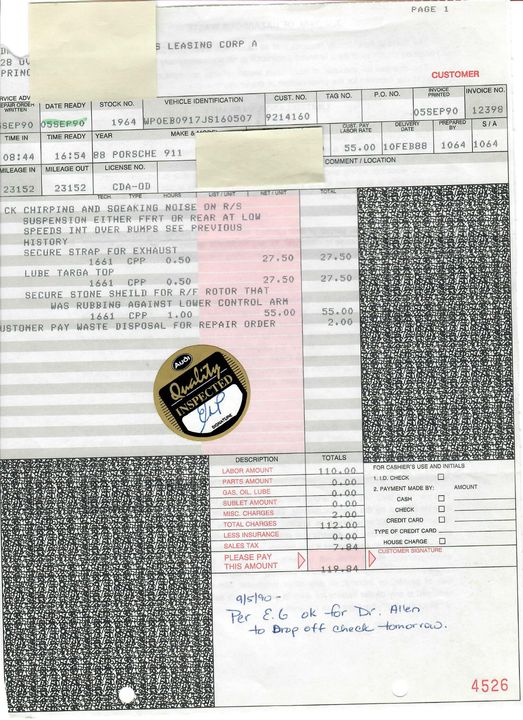 PAGE 1
S LEASING CORP A
28 OV
PRINC
CUSTOMER
REPAIR ORDER WRITTEN DATE READY STOCK NO. VEHICLE IDENTIFICATION CUST. NO. TAG NO. P.O. NO. INVOICE PRINTED INVOICE NO.
5SEP90 05SEP90 1964 WPOEB0917JS160507 9214160 05SEP90 12398
TIME IN TIME READY YEAR MAKE & MODEL CUST. PAY LABOR RATE DELIVERY DATE PREPARED BY S / A
08:44 16:54 88 PORSCHE 911 55.00 10FEB88 1064 1064
MILEAGE IN MILEAGE OUT LICENSE NO. COMMENT / LOCATION
23152 23152 CDA-OD
TECH. TYPE HOURS LIST / UNIT NET / UNIT TOTAL
CK CHIRPING AND SQEAKING NOISE ON R/S
SUSPENSION EITHER FFRT OR REAR AT LOW
SPEEDS INT OVER BUMPS SEE PREVIOUS
HISTORY
SECURE STRAP FOR EXHAUST
1661 CPP 0.50 27.50 27.50
LUBE TARGA TOP
1661 CPP 0.50 27.50 27.50
SECURE STONE SHEILD FOR R/F ROTOR THAT
WAS RUBBING AGAINST LOWER CONTROL ARM
1661 CPP 1.00 55.00 55.00
USTOMER PAY WASTE DISPOSAL FOR REPAIR ORDER 2.00
Audi
Quality
INSPECTED
SIGNATURE
DESCRIPTION TOTALS
LABOR AMOUNT 110.00
PARTS AMOUNT 0.00
GAS, OIL, LUBE 0.00
SUBLET AMOUNT 0.00
MISC. CHARGES 2.00
TOTAL CHARGES 112.00
LESS INSURANCE 0.00
SALES TAX 7.84
PLEASE PAY
THIS AMOUNT 119.84
FOR CASHIER'S USE AND INITIALS
1. I.D. CHECK
2. PAYMENT MADE BY: AMOUNT
CASH
CHECK
CREDIT CARD
TYPE OF CREDIT CARD
HOUSE CHARGE
CUSTOMER SIGNATURE
9/5/90 -
Per E.G ok for Dr. Allen
to Drop off check tomorrow.
4526